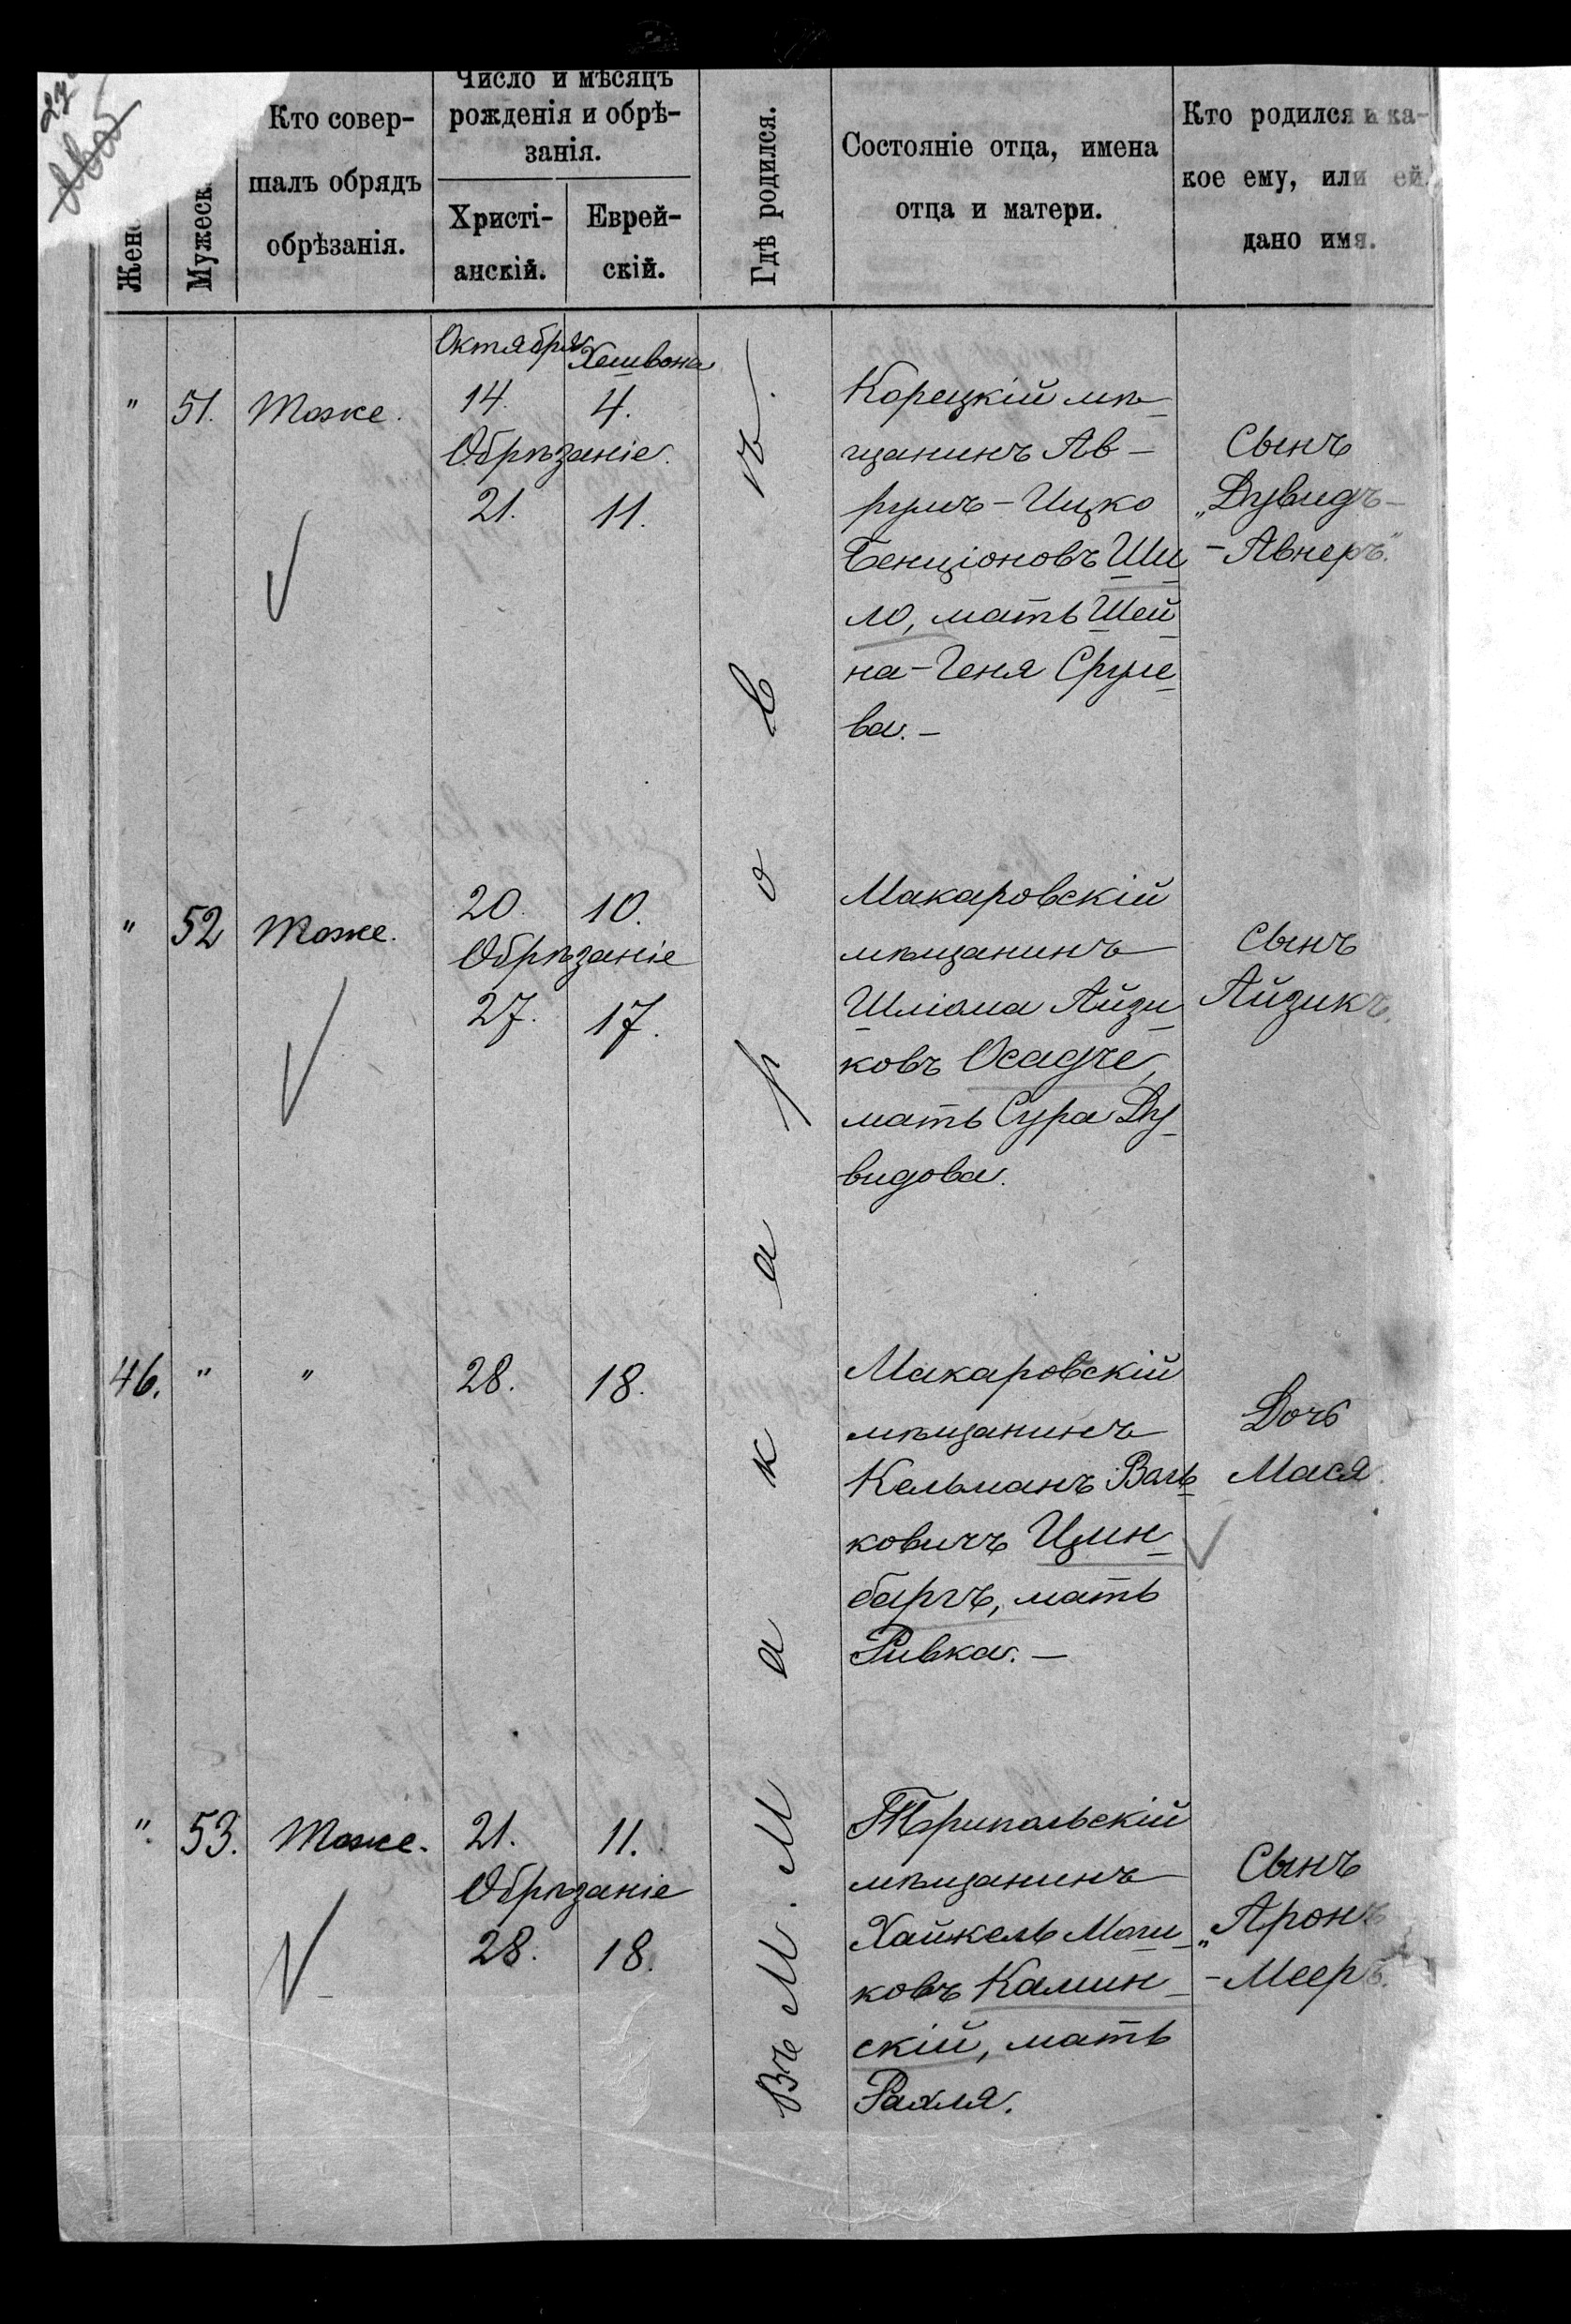 Женс
Мужеск.
Кто совер-
шалъ обрядъ
обрѣзанія.
Число и мѣсяцъ
рожденія и обрѣ-
занія.
Христі-
анскій.
Еврей-
скій.
Гдѣ родился.
Состояніе отца, имена
отца и матери.
Кто родился и ка-
кое ему, или ей
дано имя.
Въ М. Макаровъ.
Октября Хешвона
" 51. Тоже. 14. 4.
Обрѣзаніе.
21. 11.
Корецкій мѣ-
щанинъ Ав-
румъ-Ицко
Бенціоновъ Ши
ло, мать Шей
на-Геня Сруле-
ва.-
Сынъ
„Дувидъ-
-Авнеръ."
" 52 Тоже. 20. 10.
Обрѣзаніе
27. 17.
Макаровскій
мѣщанинъ
Шліома Айзи-
ковъ Осадче,
мать Сура Ду-
видова.
Сынъ
Айзикъ.
46. " " 28. 18.
Макаровскій
мѣщанинъ
Кельманъ Валь-
ковичъ Цин-
баргъ, мать
Ривка.-
Дочь
Мася.
". 53. Тоже. 21. 11.
Обрѣзаніе
28. 18.
Трипольскій
мѣщанинъ
Хайкель
ковъ Камин-
скій, мать
Рахля.
Сынъ
„Аронъ
-Мееръ.